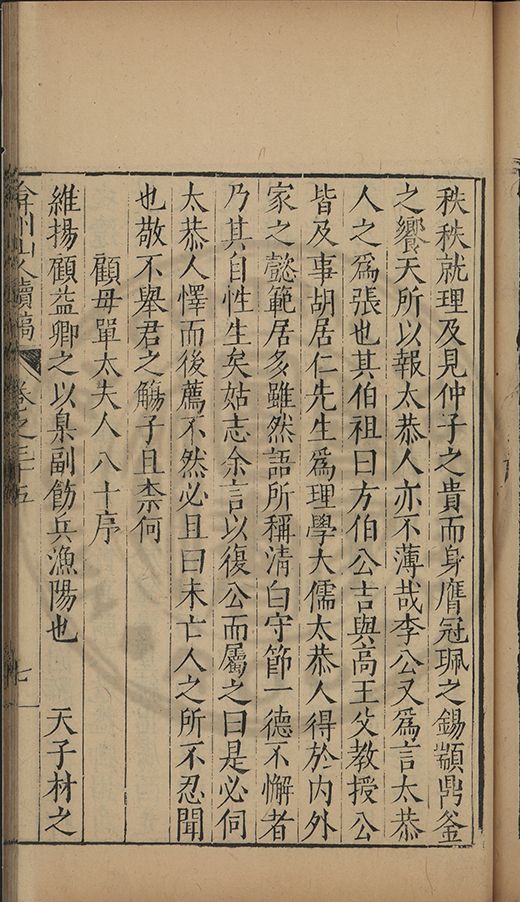 秩秩就理及見仲子之貴而身膺冠珮之錫顓鼎釜
之饗天所以報太恭人亦不薄哉李公又爲言太恭
人之爲張也其伯祖曰方伯公吉與高王父教授公
皆及事胡居仁先生爲理學大儒太恭人得於内外
家之懿範居多雖然語所稱清白守節一德不懈者
乃其自性生矣姑志余言以復公而屬之曰是必伺
太恭人懌而後薦不然必且曰未亡人之所不忍聞
也敬不舉君之觴子且柰何
顧母單太夫人八十序
維揚顧益卿之以臬副飭兵漁陽也 天子材之
弇州山人續稿 卷之三十五 七